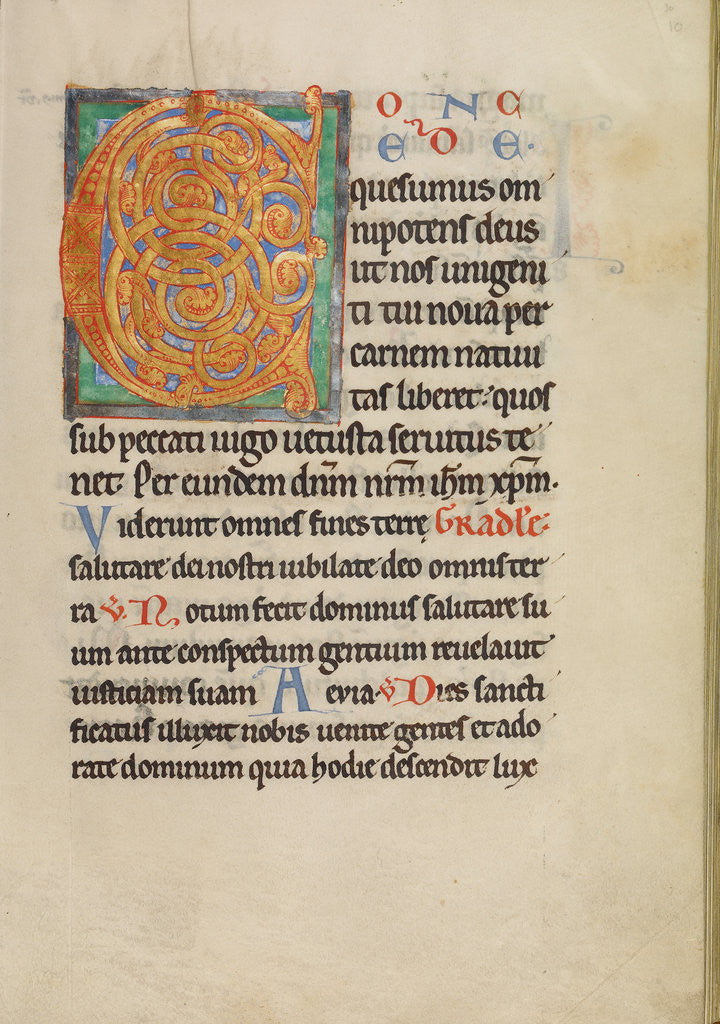 C O N C
E D E.
quesumus om
nipotens deus
ut nos unigeni
ti tui noua per
carnem natiui
tas liberet: quos
sub peccati iugo uetusta seruitus te
net. Per eundem dn̄m nr̄m ih̄m xp̄m.
Viderunt omnes fines terrę Gradl̄e:
salutare dei nostri iubilate deo omnis ter
ra V. Notum fecit dominus salutare su
um ante conspectum gentium reuelauit
iusticiam suam Aeuia. V Dies sancti
ficatus illuxit nobis uenite gentes et ado
rate dominum quia hodie descendit lux
10